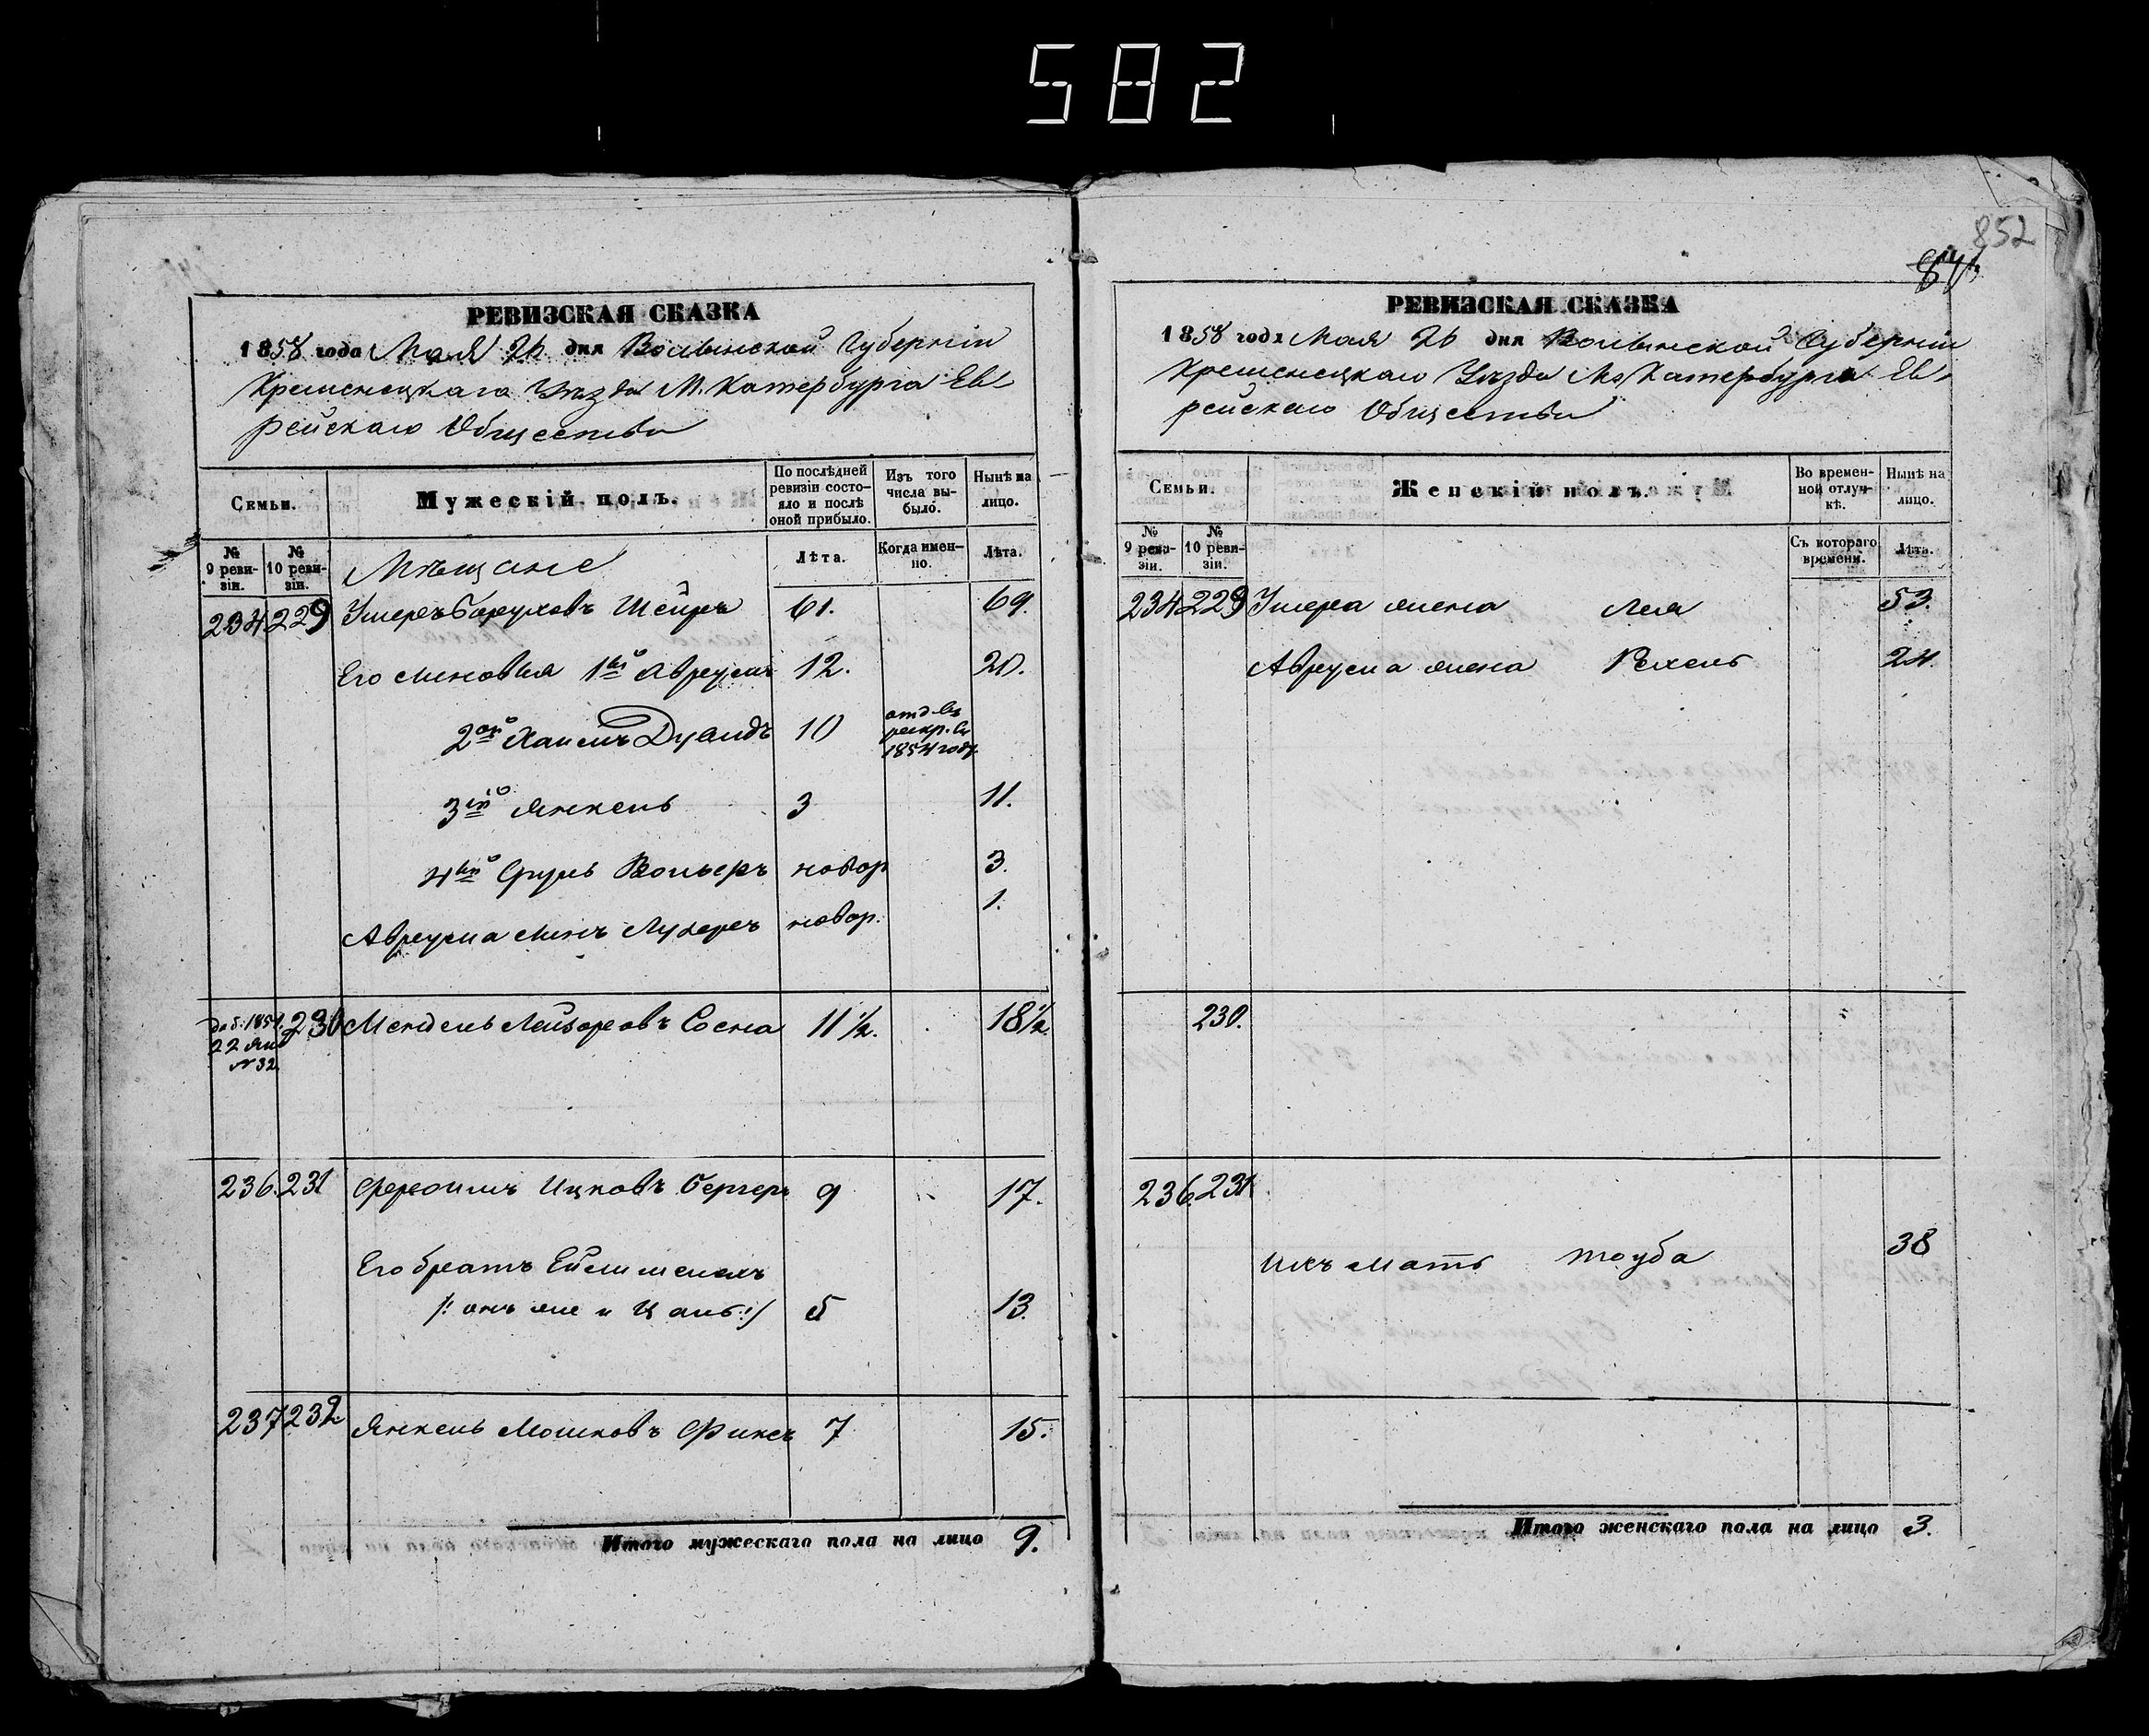 582
852
РЕВИЗСКАЯ СКАЗКА
1858 года Мая 26 дня Волынской Губерніи
Кременецкаго Уѣзда М. Катербурга Ев
рейскаго Общества
Семьи.
Мужескій полъ.
По послѣдней ревизіи состояло и послѣ оной прибыло.
Изъ того числа выбыло.
Нынѣ на лицо.
№ 9 ревизіи.
№ 10 ревизіи.
Мѣщане
Лѣта.
Когда именно.
Лѣта.
234 229 Умеръ Баруховъ 61. 69.
Его сыновья 1й Аврумъ 12. 20.
2ой Хаимъ Дувидъ 10 отд. въ рекр. въ 1854 году
3ій Янкель 3 11.
4ый Сруль Вольеръ новор 3.
Аврума сынъ новор. 1.
доб. 1851 22 Янв №32. 230 Мендель Лейзоровъ Сосна 11½. 18½
236. 231 Ицковъ Бергеръ 9 17.
Его братъ
/: онъ же и :/ 5 13.
237 232 Янкель Мошковъ Фиксъ 7 15.
Итого мужескаго пола на лицо 9.
РЕВИЗСКАЯ СКАЗКА
1858 года Мая 26 дня Волынской Губерніи
Кременецкаго Уѣзда М. Катербурга Ев
рейскаго Общества
Семьи.
Женскій полъ.
Во временной отлучкѣ.
Нынѣ на лицо.
№ 9 ревизіи.
№ 10 ревизіи.
Съ котораго времени.
Лѣта.
234 229 жена Лея 53.
Аврума жена Рехель 24.
230.
236. 231.
Ихъ мать Тоуба 38
Итого женскаго пола на лицо 3.